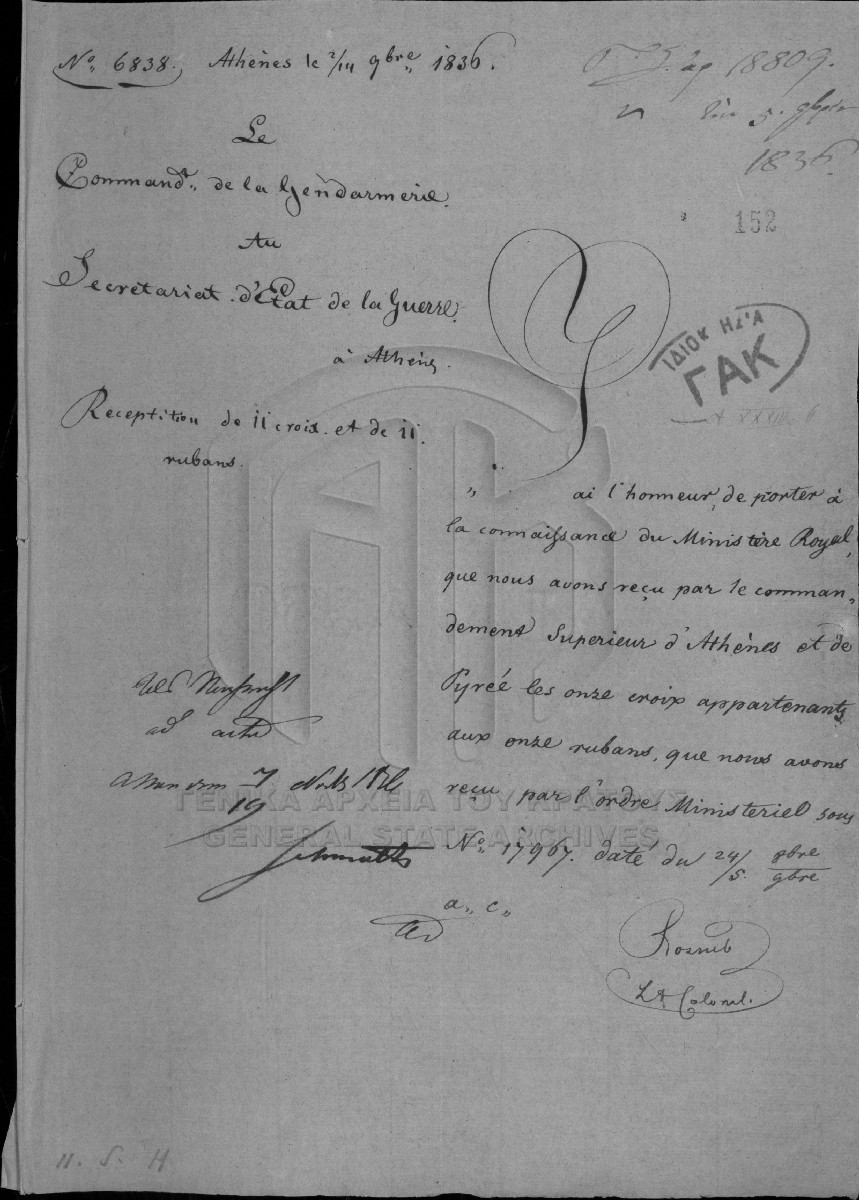 No. 6838. Athènes le 2/14 9bre 1836.
18809.
5.
1836.
152
Le
Commandr. de la Gendarmerie.
Au
Secretariat d'Etat de la Guerre.
à Athènes.
ΙΔΙΟΚΗΣΙΑ
ΓΑΚ
Reception de 11 croix et de 11
rubans.
J
„ ai l'honneur de porter à
la connaissance du Ministère Royal,
que nous avons reçu par le comman„
dement Superieur d'Athènes et de
Pyrée les onze croix appartenants
aux onze rubans, que nous avons
reçu par l'ordre Ministeriel sous
No. 17967. daté du 24/5. 8bre/9bre
a„ c„
ad acta
7
19
Rosner
Lt Colonel.
ΓΕΝΙΚΑ ΑΡΧΕΙΑ ΤΟΥ ΚΡΑΤΟΥΣ
GENERAL STATE ARCHIVES
H. S. H